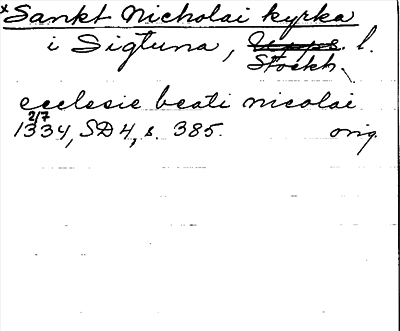 x Sankt Nicholai kyrka
i Sigtuna, Upps. l.
Stockh.
ecclesie beati nicolai
2/7
1334, SD 4, s. 385. orig.